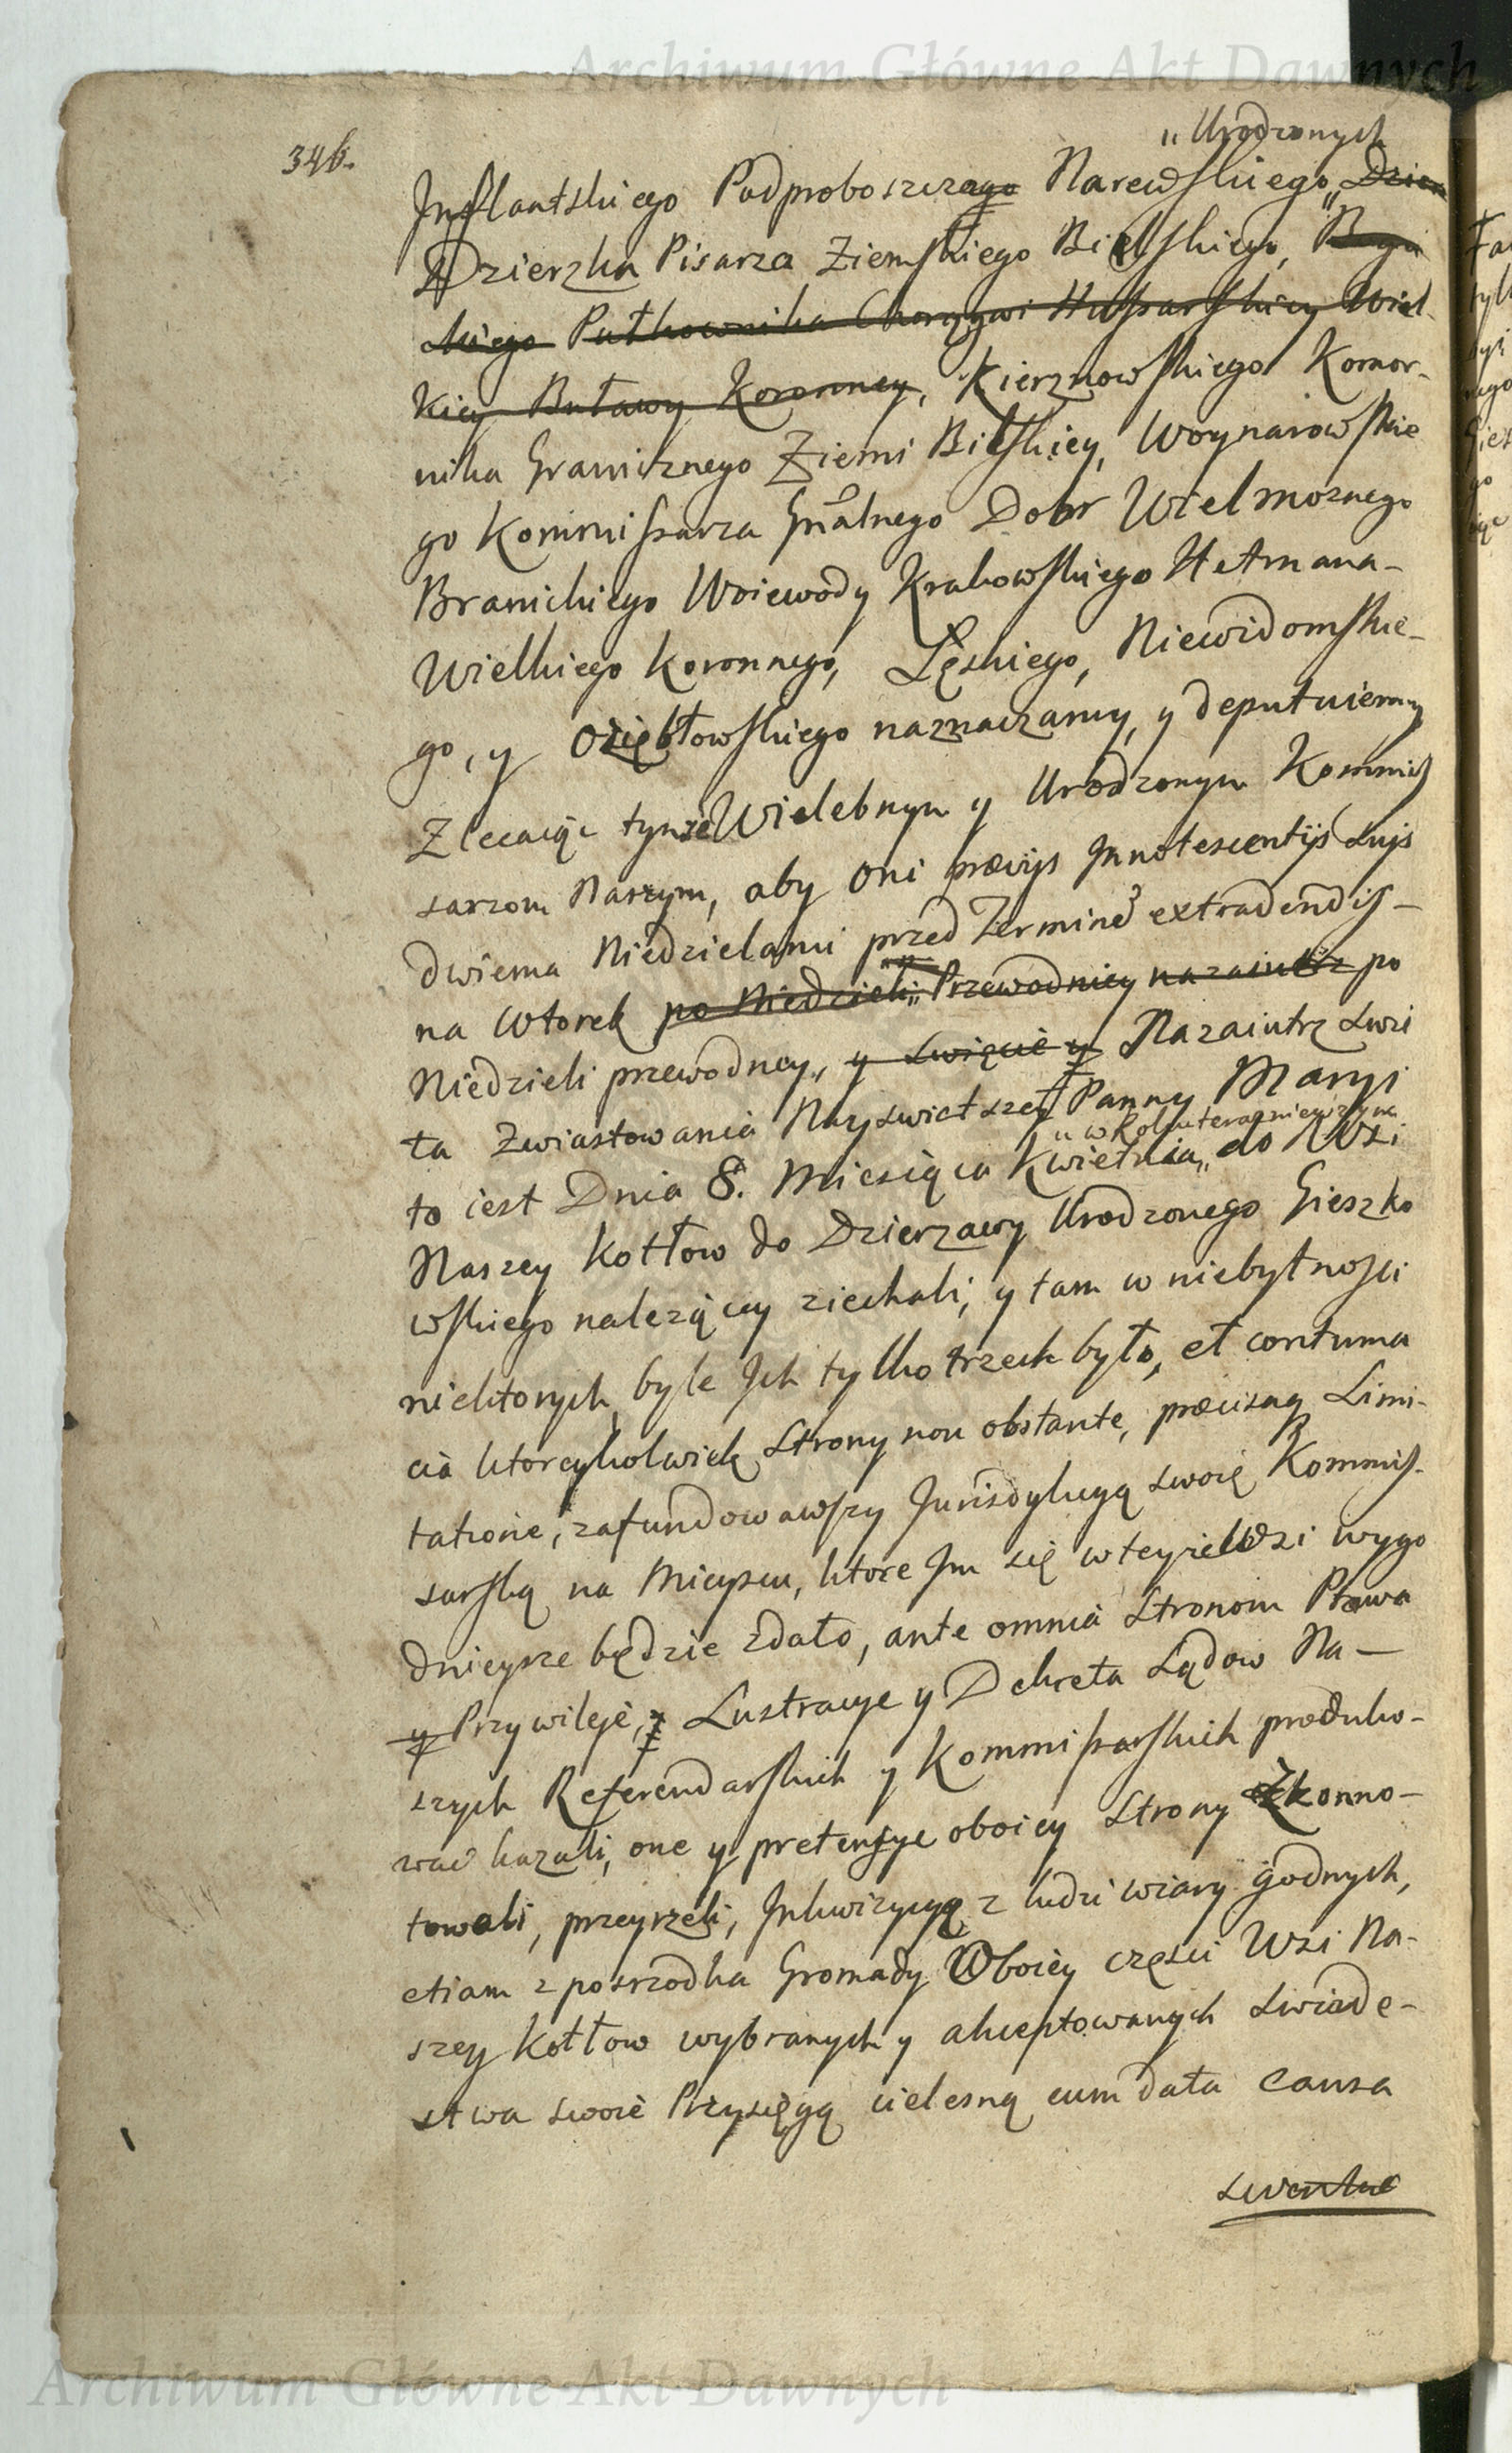 Archiwum Główne Akt Dawnych
346.
„Urodzonych
Inflantskiego Podproboszczego Narewskiego„ Dzier
Dzierzka Pisarza Ziemskiego Bielskiego,
skiego Pułkownika Chorągwi Hussarskiey Wiel-
kiey Buławy Koronney, Kierznowskiego Komor-
nika Granicznego Ziemi Bielskiey, Woynarowskie
go Kommissarza Gnalnego Dobr Wielmoznego
Branickiego Woiewody Krakowskiego Hetmana-
Wielkiego Koronnego, Lęskiego, Niewidomskie-
go, y Oziębłowskiego naznaczamy, y deputuiemy
Zlecaiąc tymze Wielebnym y Urodzonym Kommis
sarzom Naszym, aby oni prævijs Innotescentijs Suis
dwiema Niedzielami przed Termine extradendis-
na Wtorek po Niedzieli„ Przewodniey nazaiutrz po
Niedzieli przewodney, y Swięcie y Nazaiutrz Swi
ta Zwiastowania Nayswietszey Panny Maryi
„w Roku teraznieyszym
to iest Dnia 8. Miesiąca Kwietnia„ do Wsi
Naszey Kotłow do Dzierzawy Urodzonego Gieszko
wskiego nalezący ziechali, y tam w niebytnosci
niektorych, byle Ich tylko trzech było, et contuma
cia ktoreykolwiek Strony non obstante, præcisaq Limi-
tatione, zafundowawszy Jurisdykcyą swoię Kommis-
sarską na Mieyscu, ktore Im się w teyze Wsi wygo
dnieysze będzie zdało, ante omnia Stronom Prawa
y Przywileje, Lustracye y Dekreta Sądow Na-
szych Referendarskich y Kommissarskich produko-
wać kazali, one y pretensye oboiey Strony Zkonno-
towali, przeyrzeli, Inkwizycyą z ludzi wiary godnych,
etiam z posrzodka Gromady Oboiey częsci Wsi Na-
szey Kotłow wybranych y akceptowanych Swiade-
stwa swoie Przysięgą cielesną cum data causa
Archiwum Główne Akt Dawnych